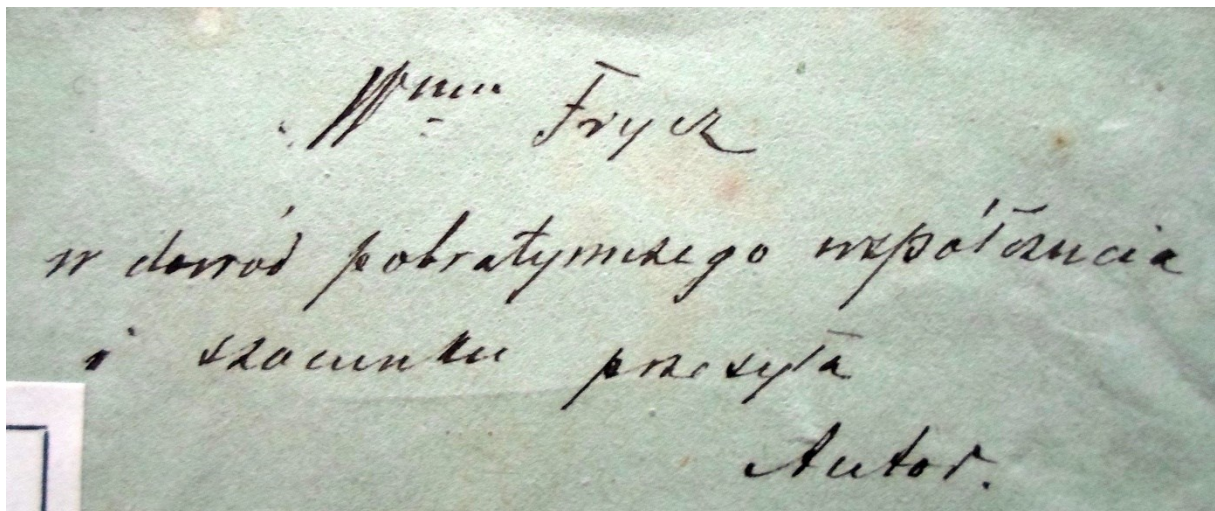 Wmu Frycz
w dowód pobratymczego współczucia
i szacunku przesyła
Autor.